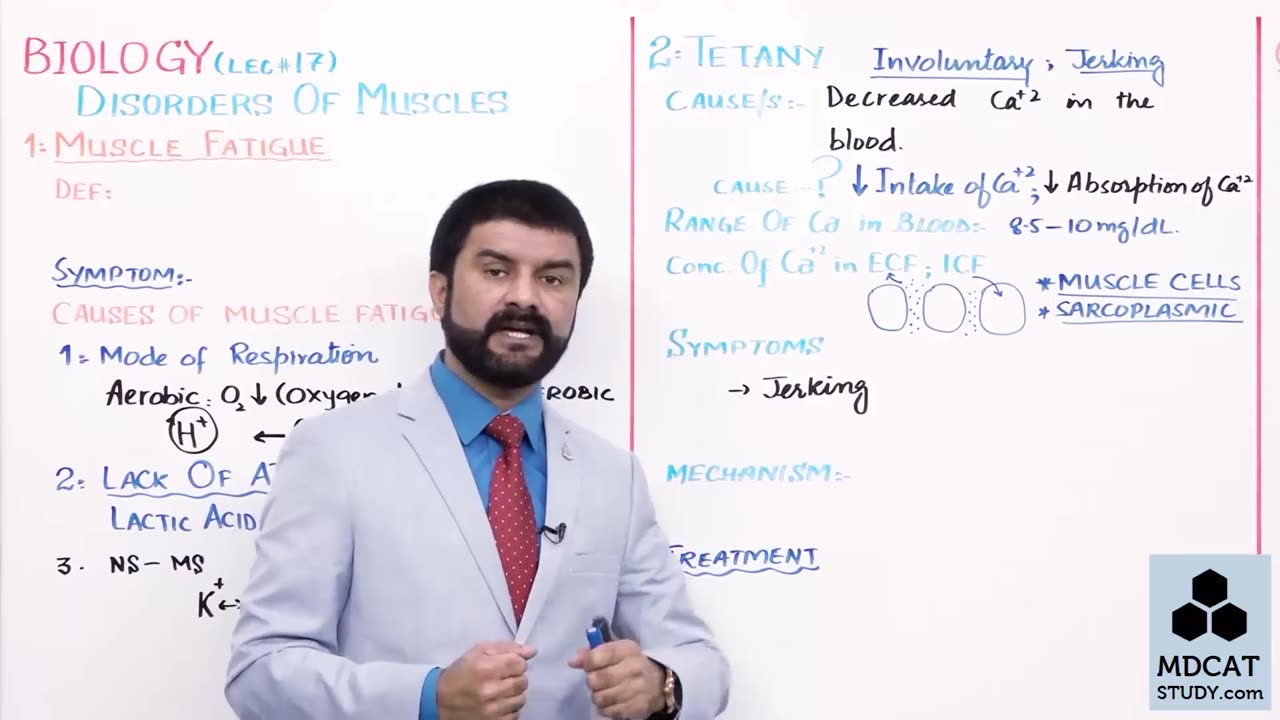 BIOLOGY (LEC#17)
DISORDERS OF MUSCLES
1: MUSCLE FATIGUE
DEF:
SYMPTOM:-
CAUSES OF MUSCLE FATIG
1: Mode of Respiration
Aerobic: O2 ↓ (Oxygen
ROBIC
H+ ←
2: LACK OF A
LACTIC ACID
3. NS-MS
K+ ↔
2: TETANY Involuntary ; Jerking
CAUSE/S:- Decreased Ca+2 in the
blood.
CAUSE...? ↓ Intake of Ca+2; ↓ Absorption of Ca+2
RANGE OF Ca in BLOOD:- 8.5-10mg/dL.
Conc. Of Ca+2 in ECF ; ICF
* MUSCLE CELLS
* SARCOPLASMIC
SYMPTOMS
→ Jerking
MECHANISM:-
TREATMENT
MDCAT
STUDY.com